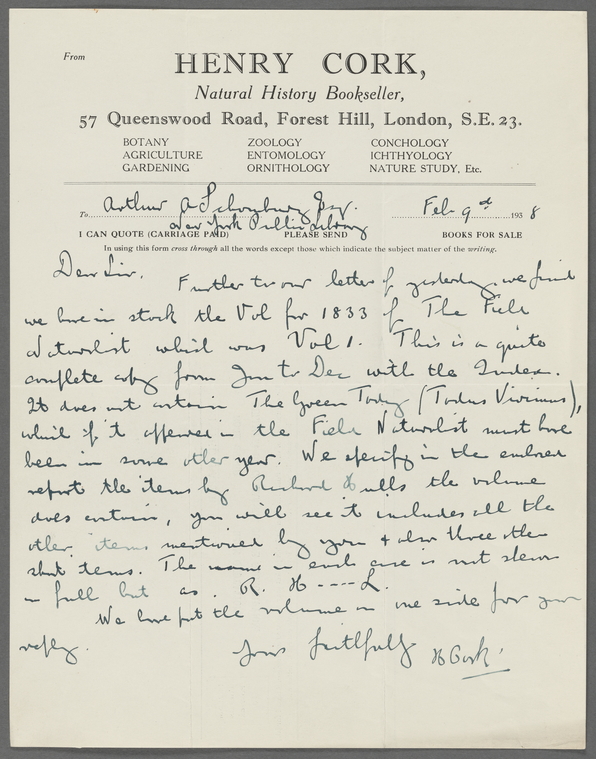 From
HENRY CORK,
Natural History Bookseller,
57 Queenswood Road, Forest Hill, London, S.E. 23.
BOTANY ZOOLOGY CONCHOLOGY
AGRICULTURE ENTOMOLOGY ICHTHYOLOGY
GARDENING ORNITHOLOGY NATURE STUDY, Etc.
To Arthur A Schomburg Esq. Feb 9th 1938
New York Public Library
I CAN QUOTE (CARRIAGE PAID) PLEASE SEND BOOKS FOR SALE
In using this form cross through all the words except those which indicate the subject matter of the writing.
Dear Sir,
Further to our letter of yesterday, we find
we have in stock the Vol for 1833 of The Field
Naturalist which was Vol 1. This is a quite
complete copy from Jan to Dec with the Index.
It does not contain The Green Tody (Todus Viridis),
which if it appeared in the Field Naturalist must have
been in some other year. We specify in the enclosed
report the items by Richard Hill the volume
does contain, you will see it includes all the
other items mentioned by you & also three other
short items. The name in each case is not shewn
in full but as R. H----L.
We have put the volume on one side for your
reply.
Yours faithfully H Cork.